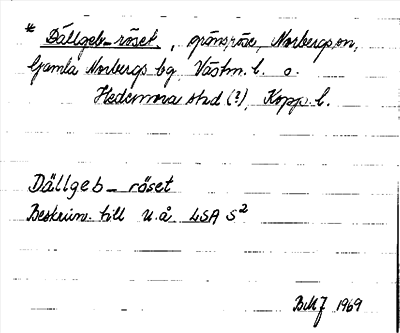 * Dällgeb-röset, gränsröse, Norbergs sn,
Gamla Norbergs bg Västm. l. o.
Hedemora stad (?), Kopp. l.
Dällgeb-röset
Beskrivn. till u.å. LSA S²
BMJ 1969